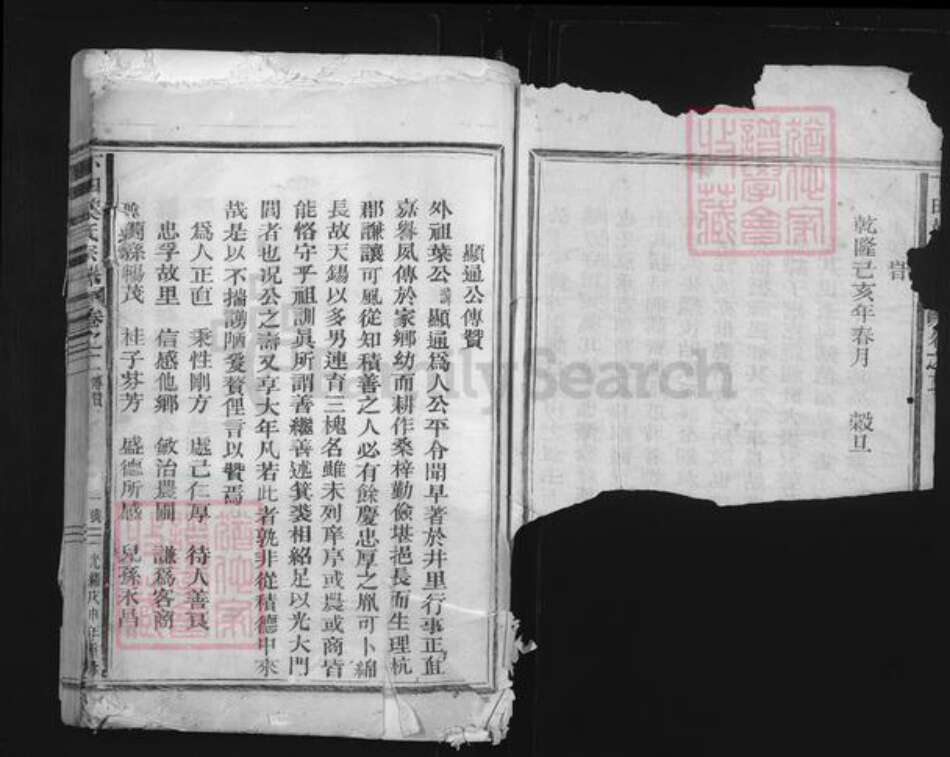 旹
乾隆己亥年春月 穀旦
顯通公傳贊
外祖葉公諱顯通爲人公平令聞早著於井里行事正直
嘉譽夙傳於家鄉幼而耕作桑梓勤儉堪挹長而生理杭
郡謙讓可風從知積善之人必有餘慶忠厚之胤可卜綿
長故天錫以多男連育三槐名雖未列庠序或農或商皆
能恪守乎祖訓眞所謂善繼善述箕裘相紹足以光大門
閭者也况公之壽又享大年凡若此者孰非從積德中來
哉是以不揣謭陋爰贅俚言以贊焉
爲人正直 秉性剛方 處己仁厚 待人善良
忠孚故里 信感他鄉 敏治農圃 謙爲客商
蘭孫暢茂 桂子芬芳 盛德所感 兒孫永昌
卷之二 傳贊
光緒戊申年重修
譜學會
收藏
FamilySearch